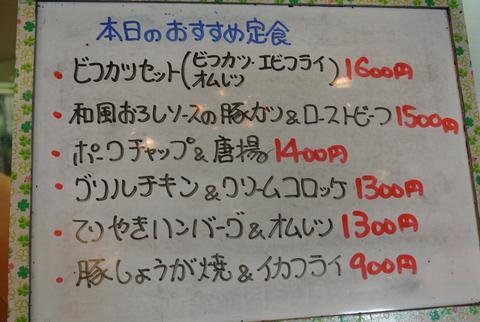 本日のおすすめ定食
・ビフカツセット(ビフカツ・エビフライ オムレツ)1600円
・和風おろしソースの豚カツ&ローストビーフ1500円
・ポークチャップ&唐揚1400円
・グリルチキン&クリームコロッケ1300円
・てりやきハンバーグ&オムレツ1300円
・豚しょうが焼&イカフライ900円